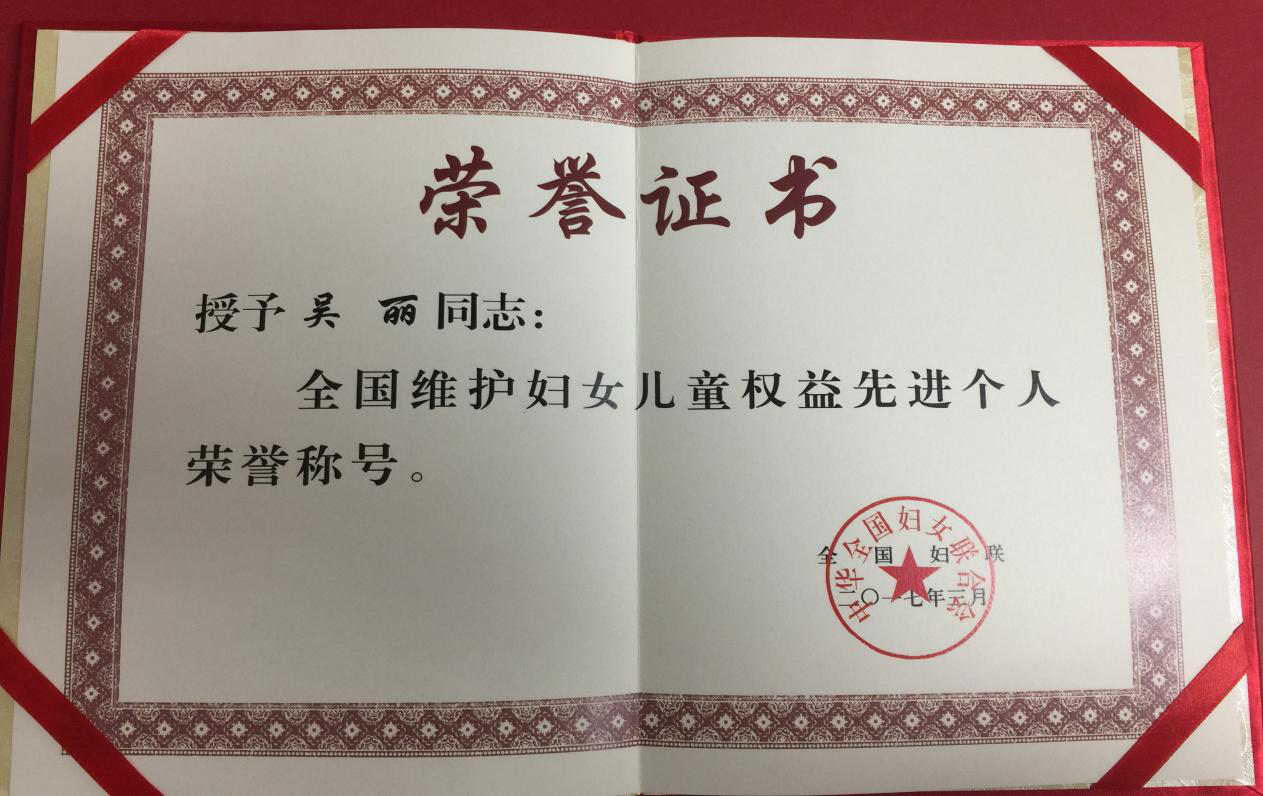 荣誉证书
授予 吴 丽 同志：
全国维护妇女儿童权益先进个人
荣誉称号。
全国妇联
二〇一七年三月
中华全国妇女联合会